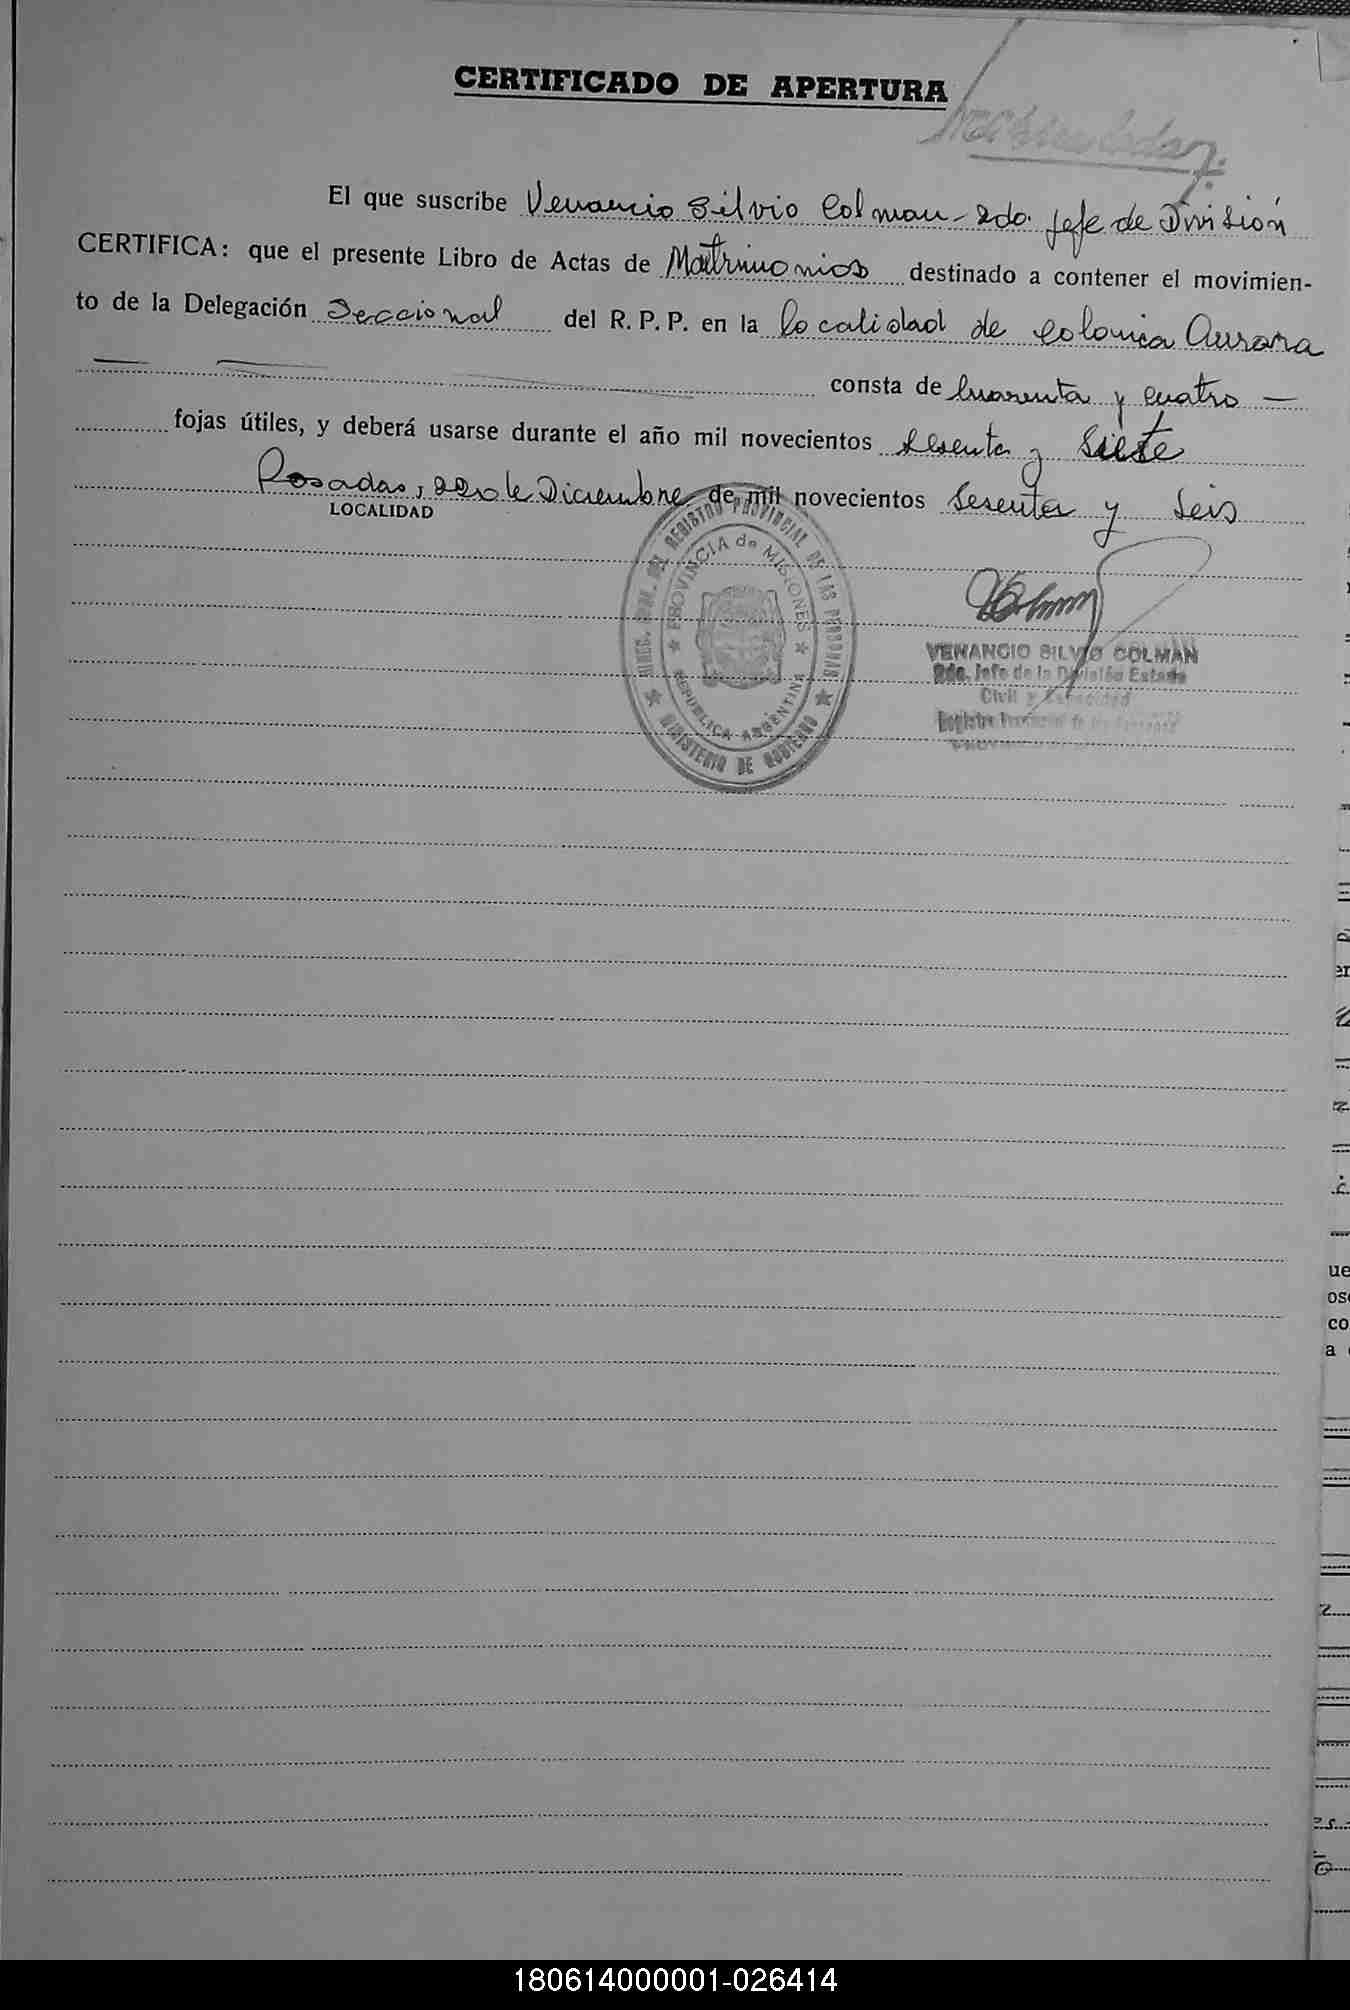 CERTIFICADO DE APERTURA
El que suscribe Venancio Silvio Colman - 2do. Jefe de División
CERTIFICA: que el presente Libro de Actas de Matrimonios destinado a contener el movimien-
to de la Delegación Seccional del R. P. P. en la localidad de Colonia Aurora
consta de Cuarenta y cuatro —
fojas útiles, y deberá usarse durante el año mil novecientos sesenta y siete
Posadas, de Diciembre de mil novecientos sesenta y seis
LOCALIDAD
DIREC. GRAL. DEL REGISTRO PROVINCIAL DE LAS PERSONAS
PROVINCIA de MISIONES
REPUBLICA ARGENTINA
MINISTERIO DE GOBIERNO
VENANCIO SILVIO COLMAN
2do. Jefe de la División Estado
Civil y Capacidad
Registro Provincial de las Personas
180614000001-026414